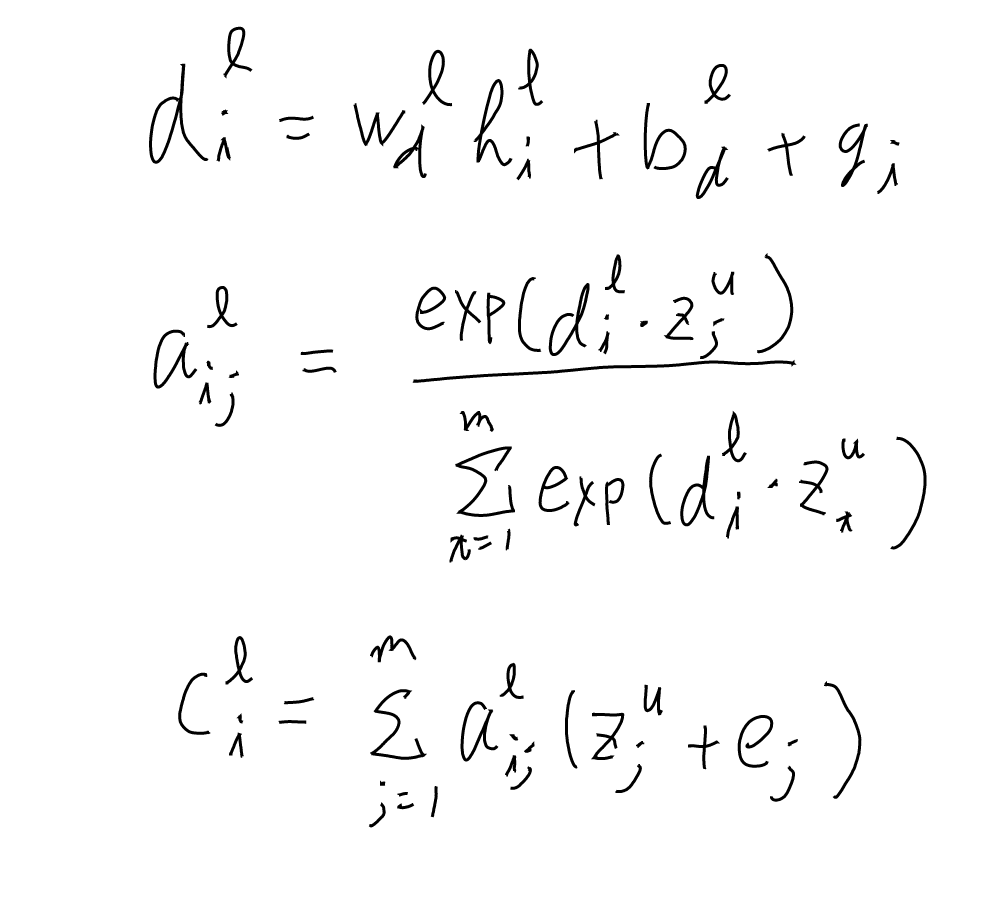 d_i^l = w_d^l h_i^l + b_d^l + g_i
a_{ij}^l = \frac{exp(d_i^l \cdot z_j^u)}{\sum_{x=1}^{m} exp(d_i^l \cdot z_x^u)}
c_i^l = \sum_{j=1}^{m} a_{ij}^l (z_j^u + e_j)